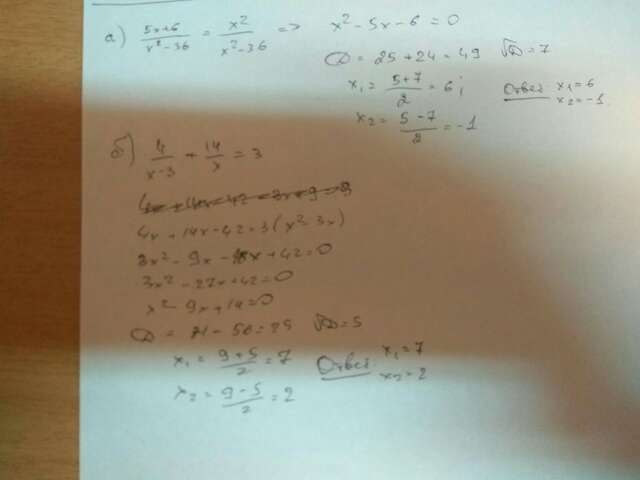 а) (5x+6)/(x²-36) = x²/(x²-36) => x² - 5x - 6 = 0
D = 25 + 24 = 49 √D = 7
x₁ = (5+7)/2 = 6;
x₂ = (5-7)/2 = -1
Ответ: x₁ = 6
x₂ = -1
б) 4/(x-3) + 14/x = 3
4x + 14x - 42 = 3(x² - 3x)
3x² - 9x - 18x + 42 = 0
3x² - 27x + 42 = 0
x² - 9x + 14 = 0
D = 81 - 56 = 25 √D = 5
x₁ = (9+5)/2 = 7
x₂ = (9-5)/2 = 2
Ответ: x₁ = 7
x₂ = 2